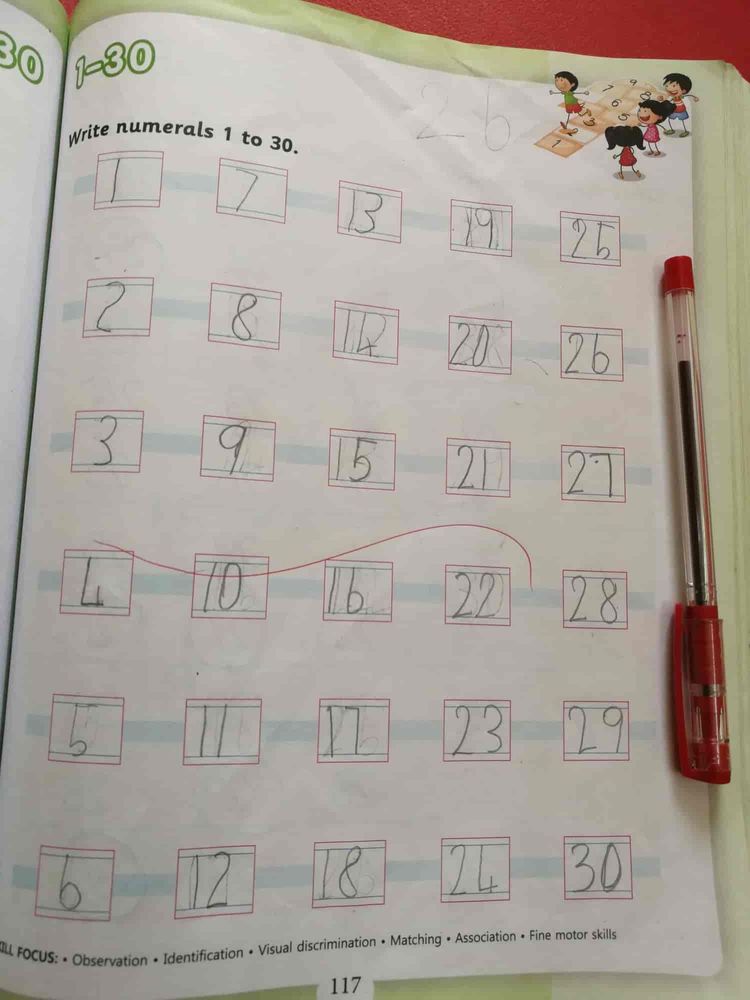 30
1-30
26
Write numerals 1 to 30.
1 7 13 19 25
2 8 14 20 26
3 9 15 21 27
4 10 16 22 28
5 11 17 23 29
6 12 18 24 30
ILL FOCUS: • Observation • Identification • Visual discrimination • Matching • Association • Fine motor skills
117